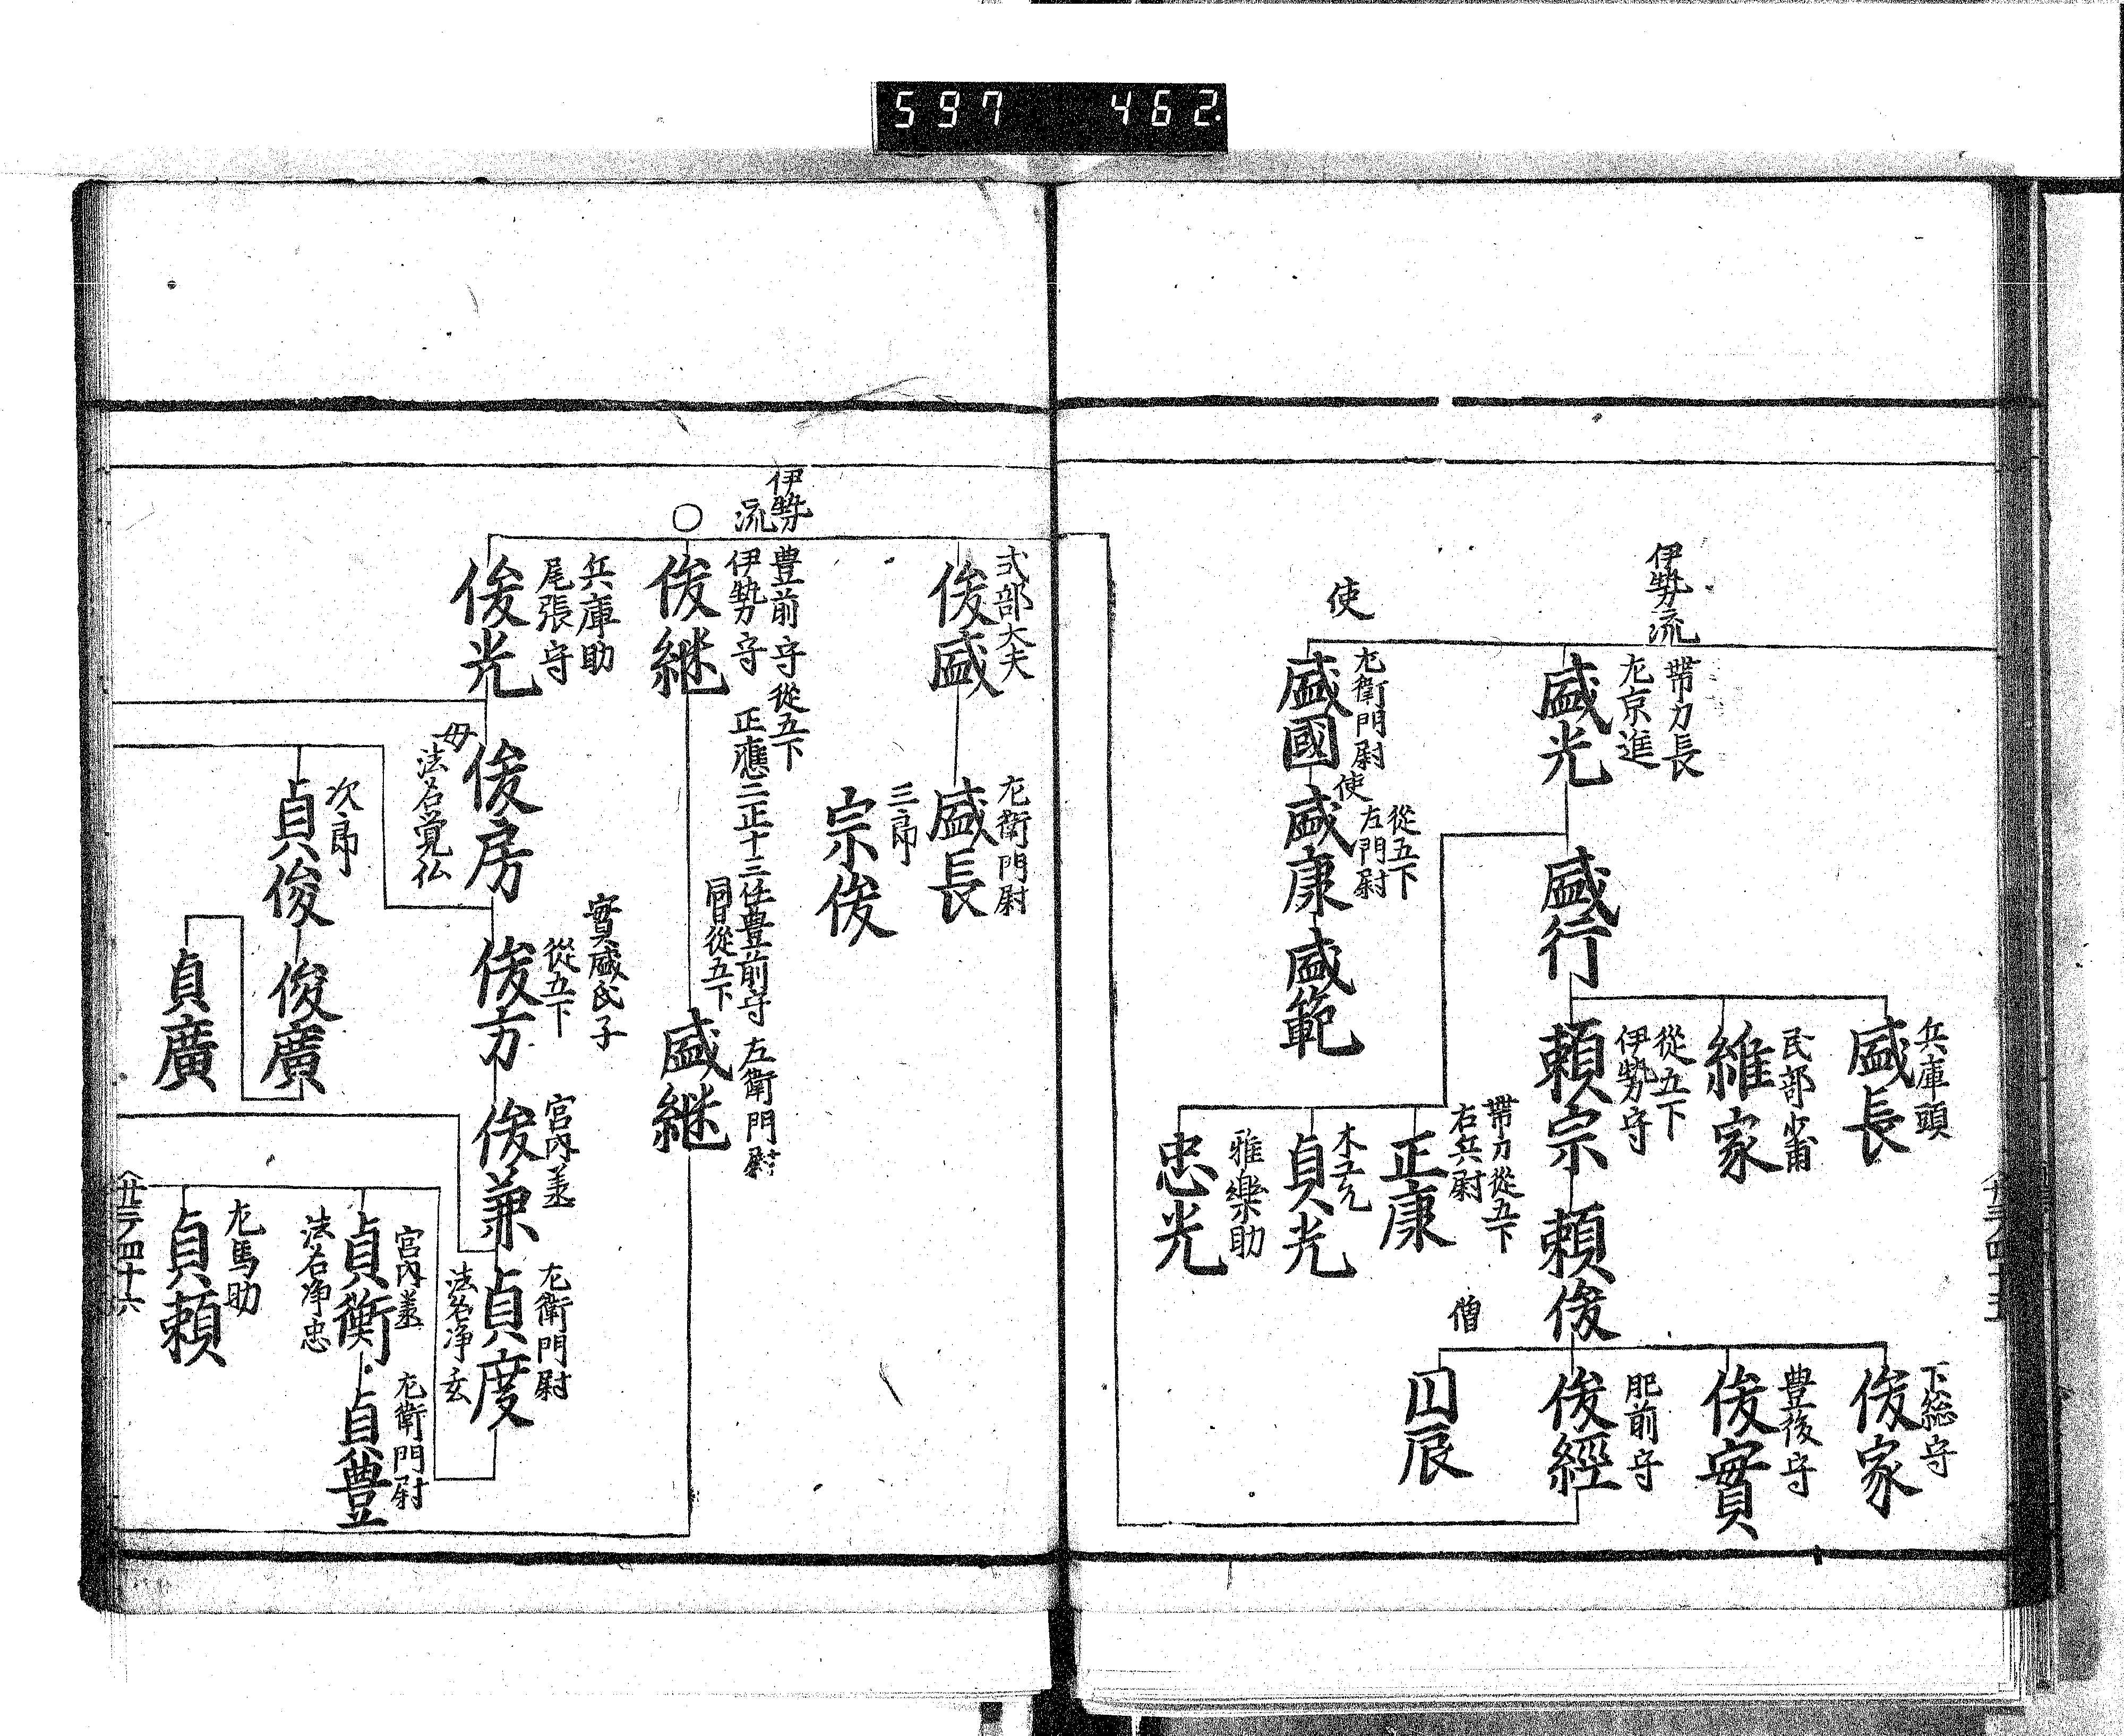 597 462
伊勢流
帯刀長
左京進
盛光
盛行
兵庫頭
盛長
民部少甫
維家
從五下
伊勢守
頼宗
頼俊
下総守
俊家
豊後守
俊實
肥前守
俊經
僧
帯刀從五下
右兵尉
正康
木工允
貞光
雅樂助
忠光
使
左衛門尉
盛國
使
從五下
左門尉
盛康
盛範
式部大夫
俊盛
左衛門尉
盛長
三郎
宗俊
伊勢
流
○
豊前守從五下
伊勢守
正應二正十三任豊前守
俊継
左衛門尉
同日從五下
盛継
兵庫助
尾張守
俊光
俊房
母
法名覚仏
實盛氏子
從五下
俊方
宮内丞
俊兼
左衛門尉
貞度
法名浄玄
次郎
貞俊
俊廣
貞廣
宮内丞
貞衡
法名浄忠
左衛門尉
貞豊
左馬助
貞頼